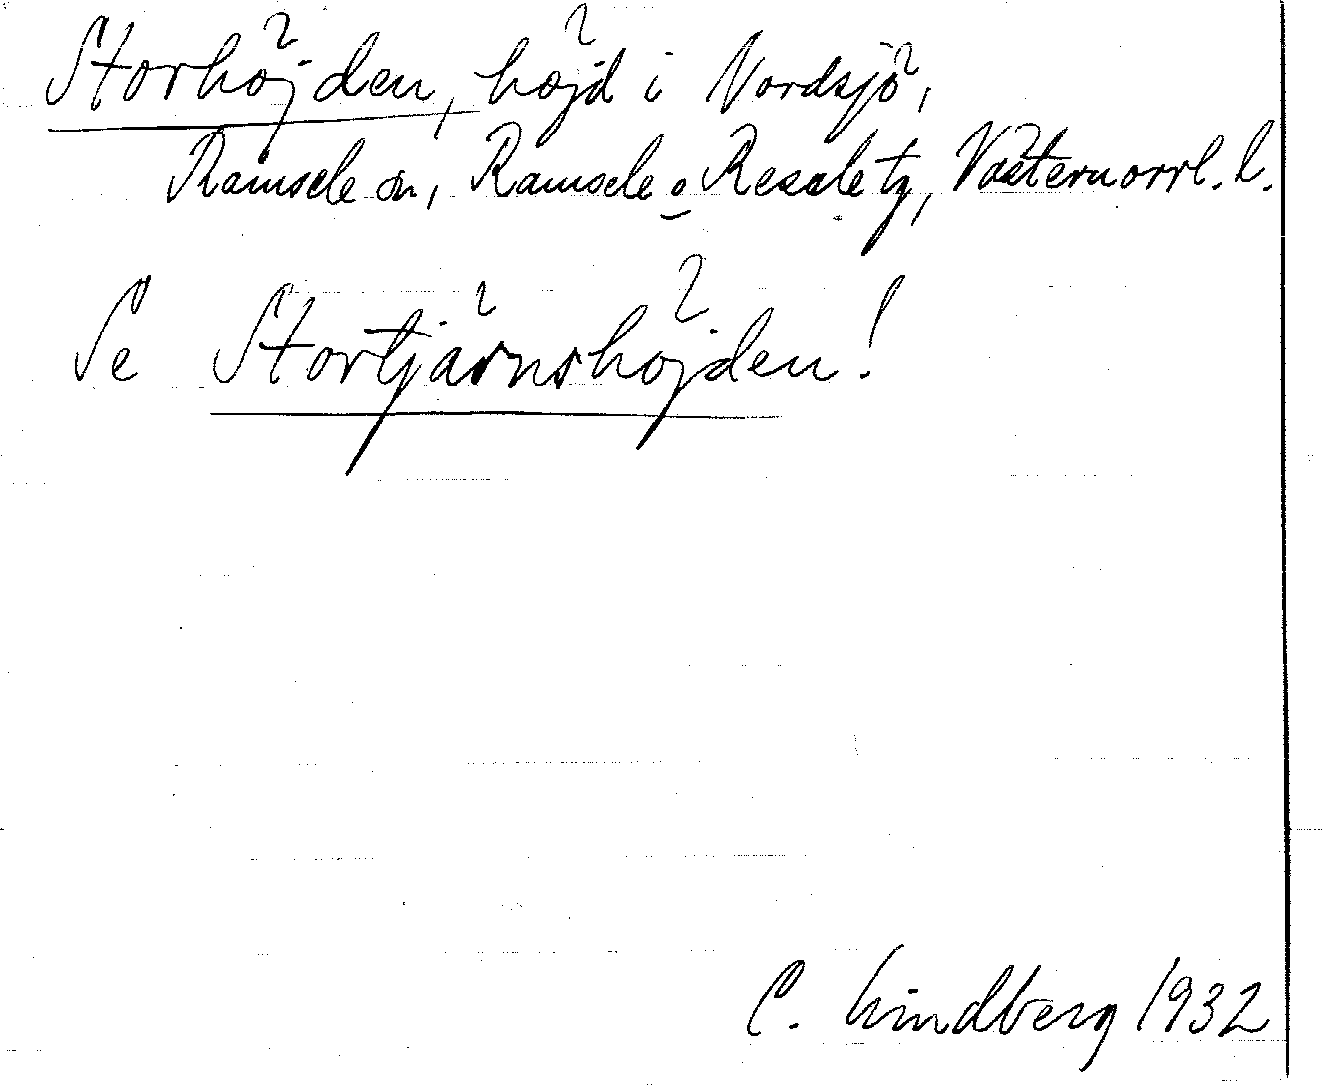 Storhöjden, höjd i Nordsjö,
Ramsele sn, Ramsele o Resele tg, Västernorrl. l.
Se Stortjärnshöjden!
C. Lindberg 1932